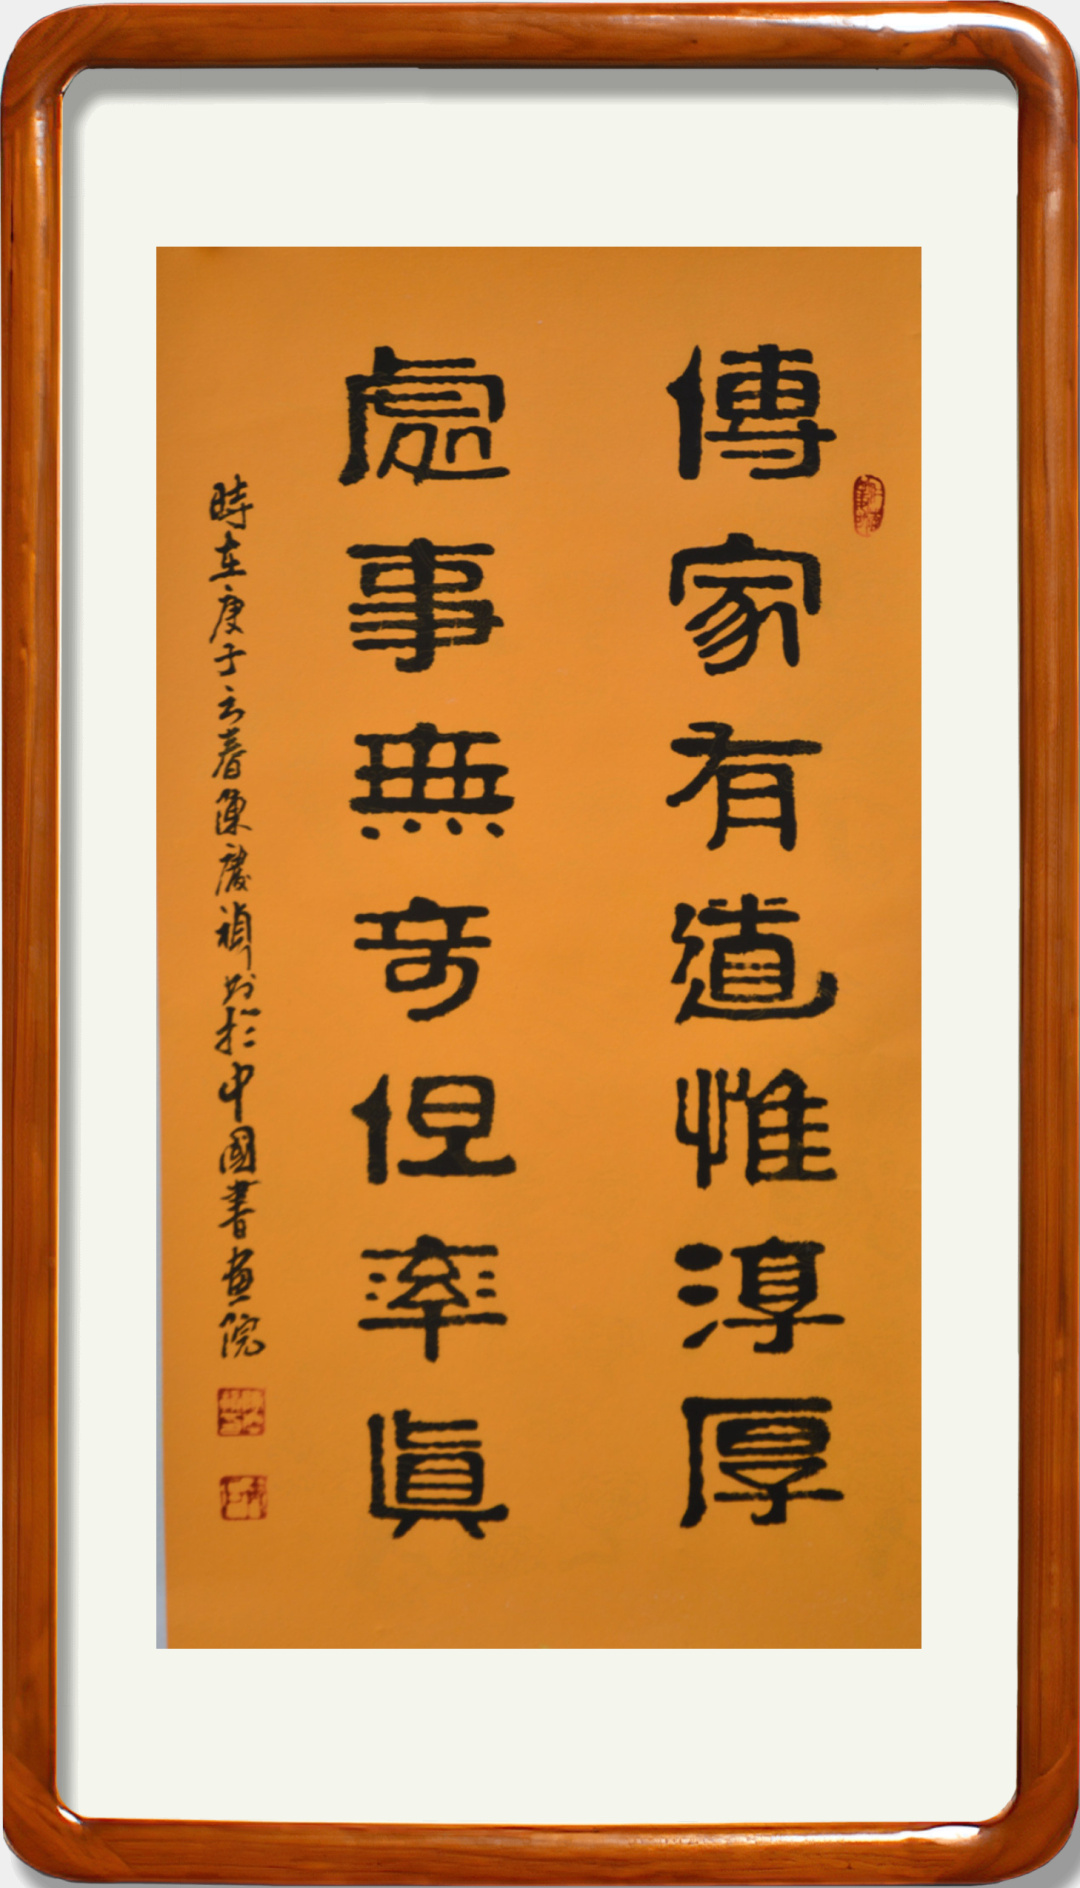 傳家有道惟淳厚
處事無奇但率真
時在庚子之春陳慶禎書於中國書畫院